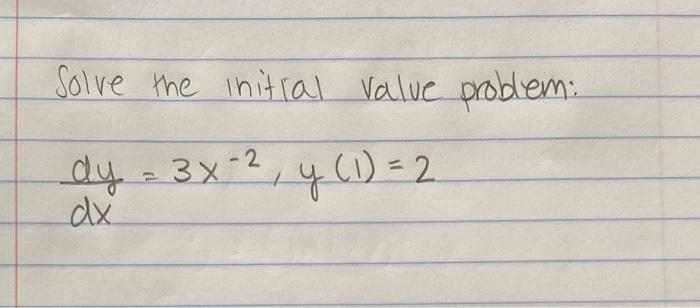 Solve the initial value problem:
dy/dx = 3x^-2, y(1) = 2